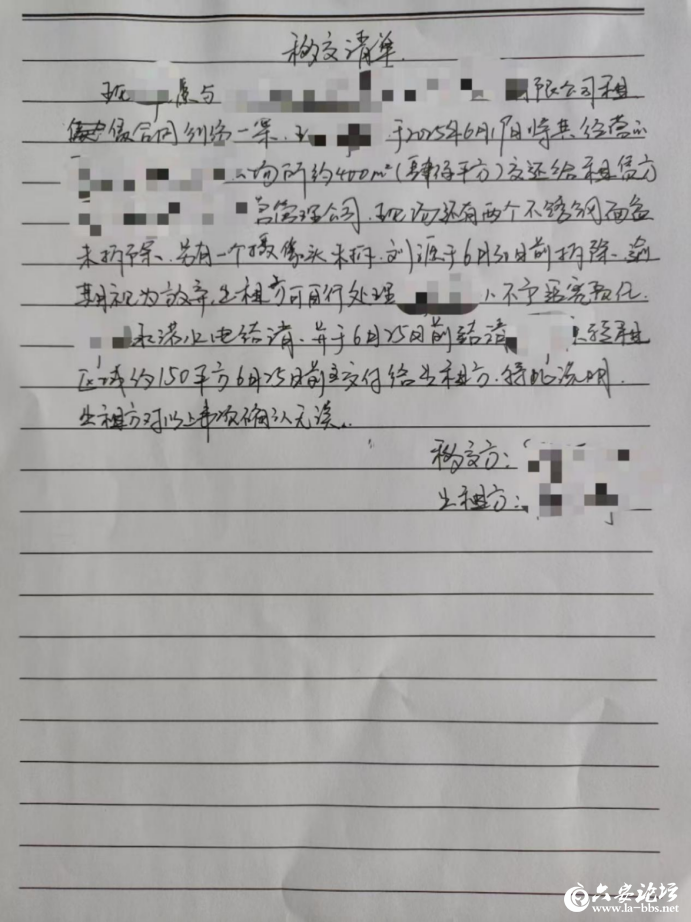 移交清单
现 与 有限公司租
赁合同纠纷一案,现 于2025年6月19日将其经营的
场所约400m²(肆佰平方)交还给租赁方
管理公司,现场还有两个不锈钢面盆
未拆除,另有一个摄像头未拆,刘 于6月30日前拆除,逾
期视为放弃,出租方可自行处理 不予
承诺水电结清,并于6月25日前结清 转租
区域约150平方6月25日前交付给出租方,特此说明,
出租方对以上事项确认无误。
移交方:
出租方:
六安论坛
www.la-bbs.net